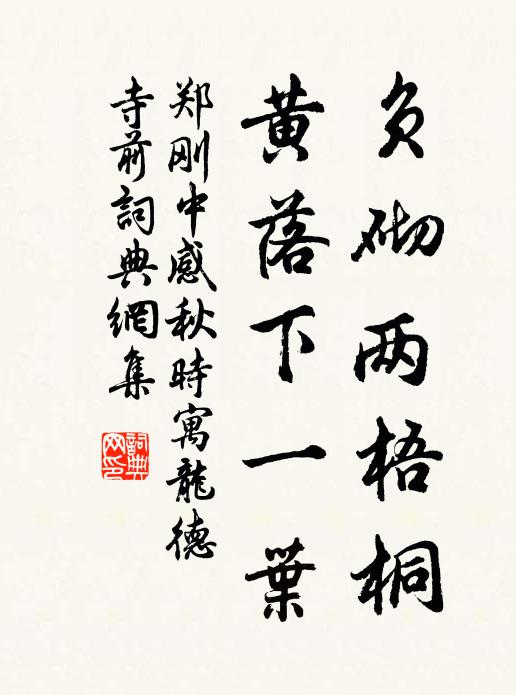 负砌两梧桐
黄落下一葉
郑刚中感秋時寓龍德
寺前詞典網集
詞典网印